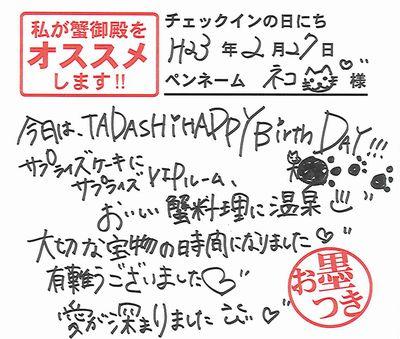 私が蟹御殿を
オススメ
します!!
チェックインの日にち
H23年2月27日
ペンネーム ネコ 様
今日は、TADASHi HAPPY Birth DAY!!!
サプライズケーキに
サプライズVIPルーム、
おいしい蟹料理に温泉
大切な宝物の時間になりました♡
有難うございました♡
愛が深まりました ♡
お墨
つき